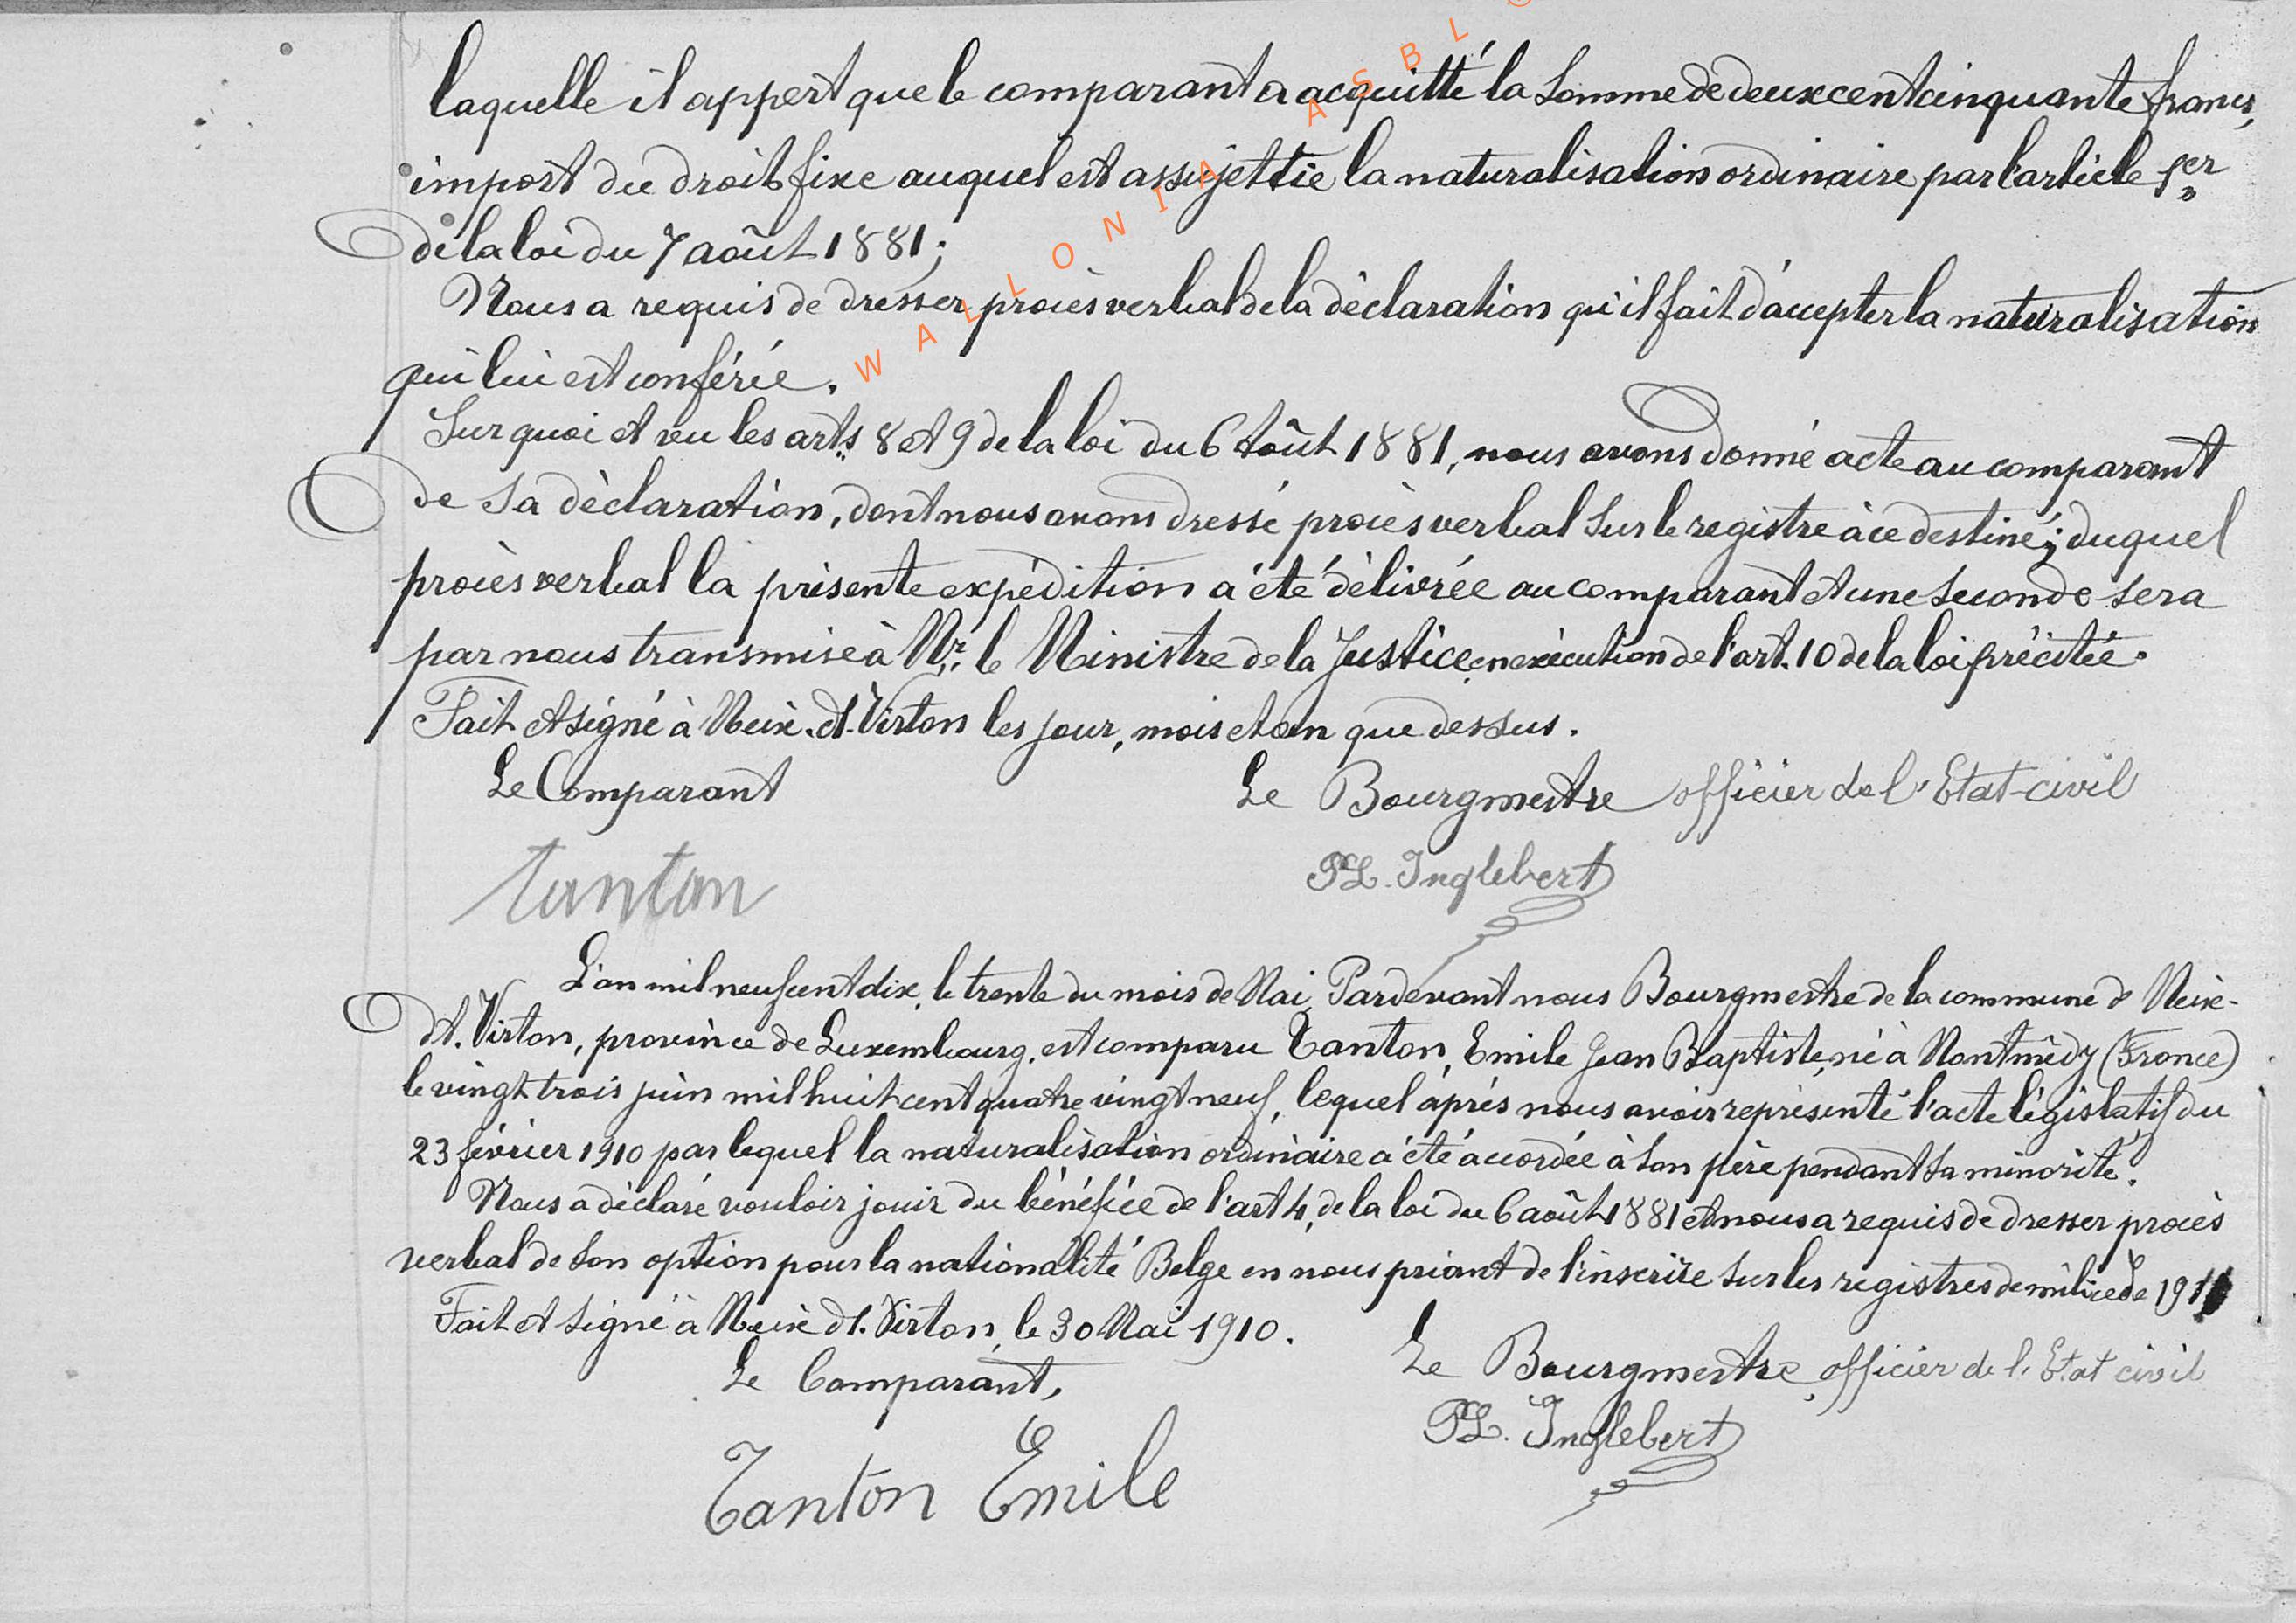 laquelle il appert que le comparant a acquitté la somme de deux cent cinquante francs,
import du droit fixe auquel est assujettie la naturalisation ordinaire par l'article 1er
de la loi du 7 août 1881;
Nous a requis de dresser procès verbal de la déclaration qu'il fait d'accepter la naturalisation
qui lui est conférée.
Sur quoi et vu les arts 8 et 9 de la loi du 6 Août 1881, nous avons donné acte au comparant
de sa déclaration, dont nous avons dressé procès verbal sur le registre à ce destiné; duquel
procès verbal la présente expédition a été délivrée au comparant et une seconde sera
par nous transmise à Mr. le Ministre de la Justice, en exécution de l'art. 10 de la loi précitée.
Fait et signé à Meix-dt-Virton les jour, mois et an que dessus.
Le Comparant
Le Bourgmestre officier de l'Etat-civil
Tanton
PL. Inglebert
L'an mil neuf cent dix, le trente du mois de Mai, Pardevant nous Bourgmestre de la commune de Meix-
dt. Virton, province de Luxembourg, est comparu Tanton, Emile Jean Baptiste, né à Montmédy (France)
le vingt trois juin mil huit cent quatre vingt neuf, lequel après nous avoir représenté l'acte législatif du
23 février 1910 par lequel la naturalisation ordinaire a été accordée à son père pendant sa minorité.
Nous a déclaré vouloir jouir du bénéfice de l'art 4, de la loi du 6 août 1881 et nous a requis de dresser procès
verbal de son option pour la nationalité Belge en nous priant de l'inscrire sur les registres de milice de 1911
Fait et signé à Meix dt. Virton, le 30 Mai 1910.
Le Comparant,
Le Bourgmestre, officier de l'Etat civil
PL. Inglebert
Tanton Emile
WALLONIA ASBL